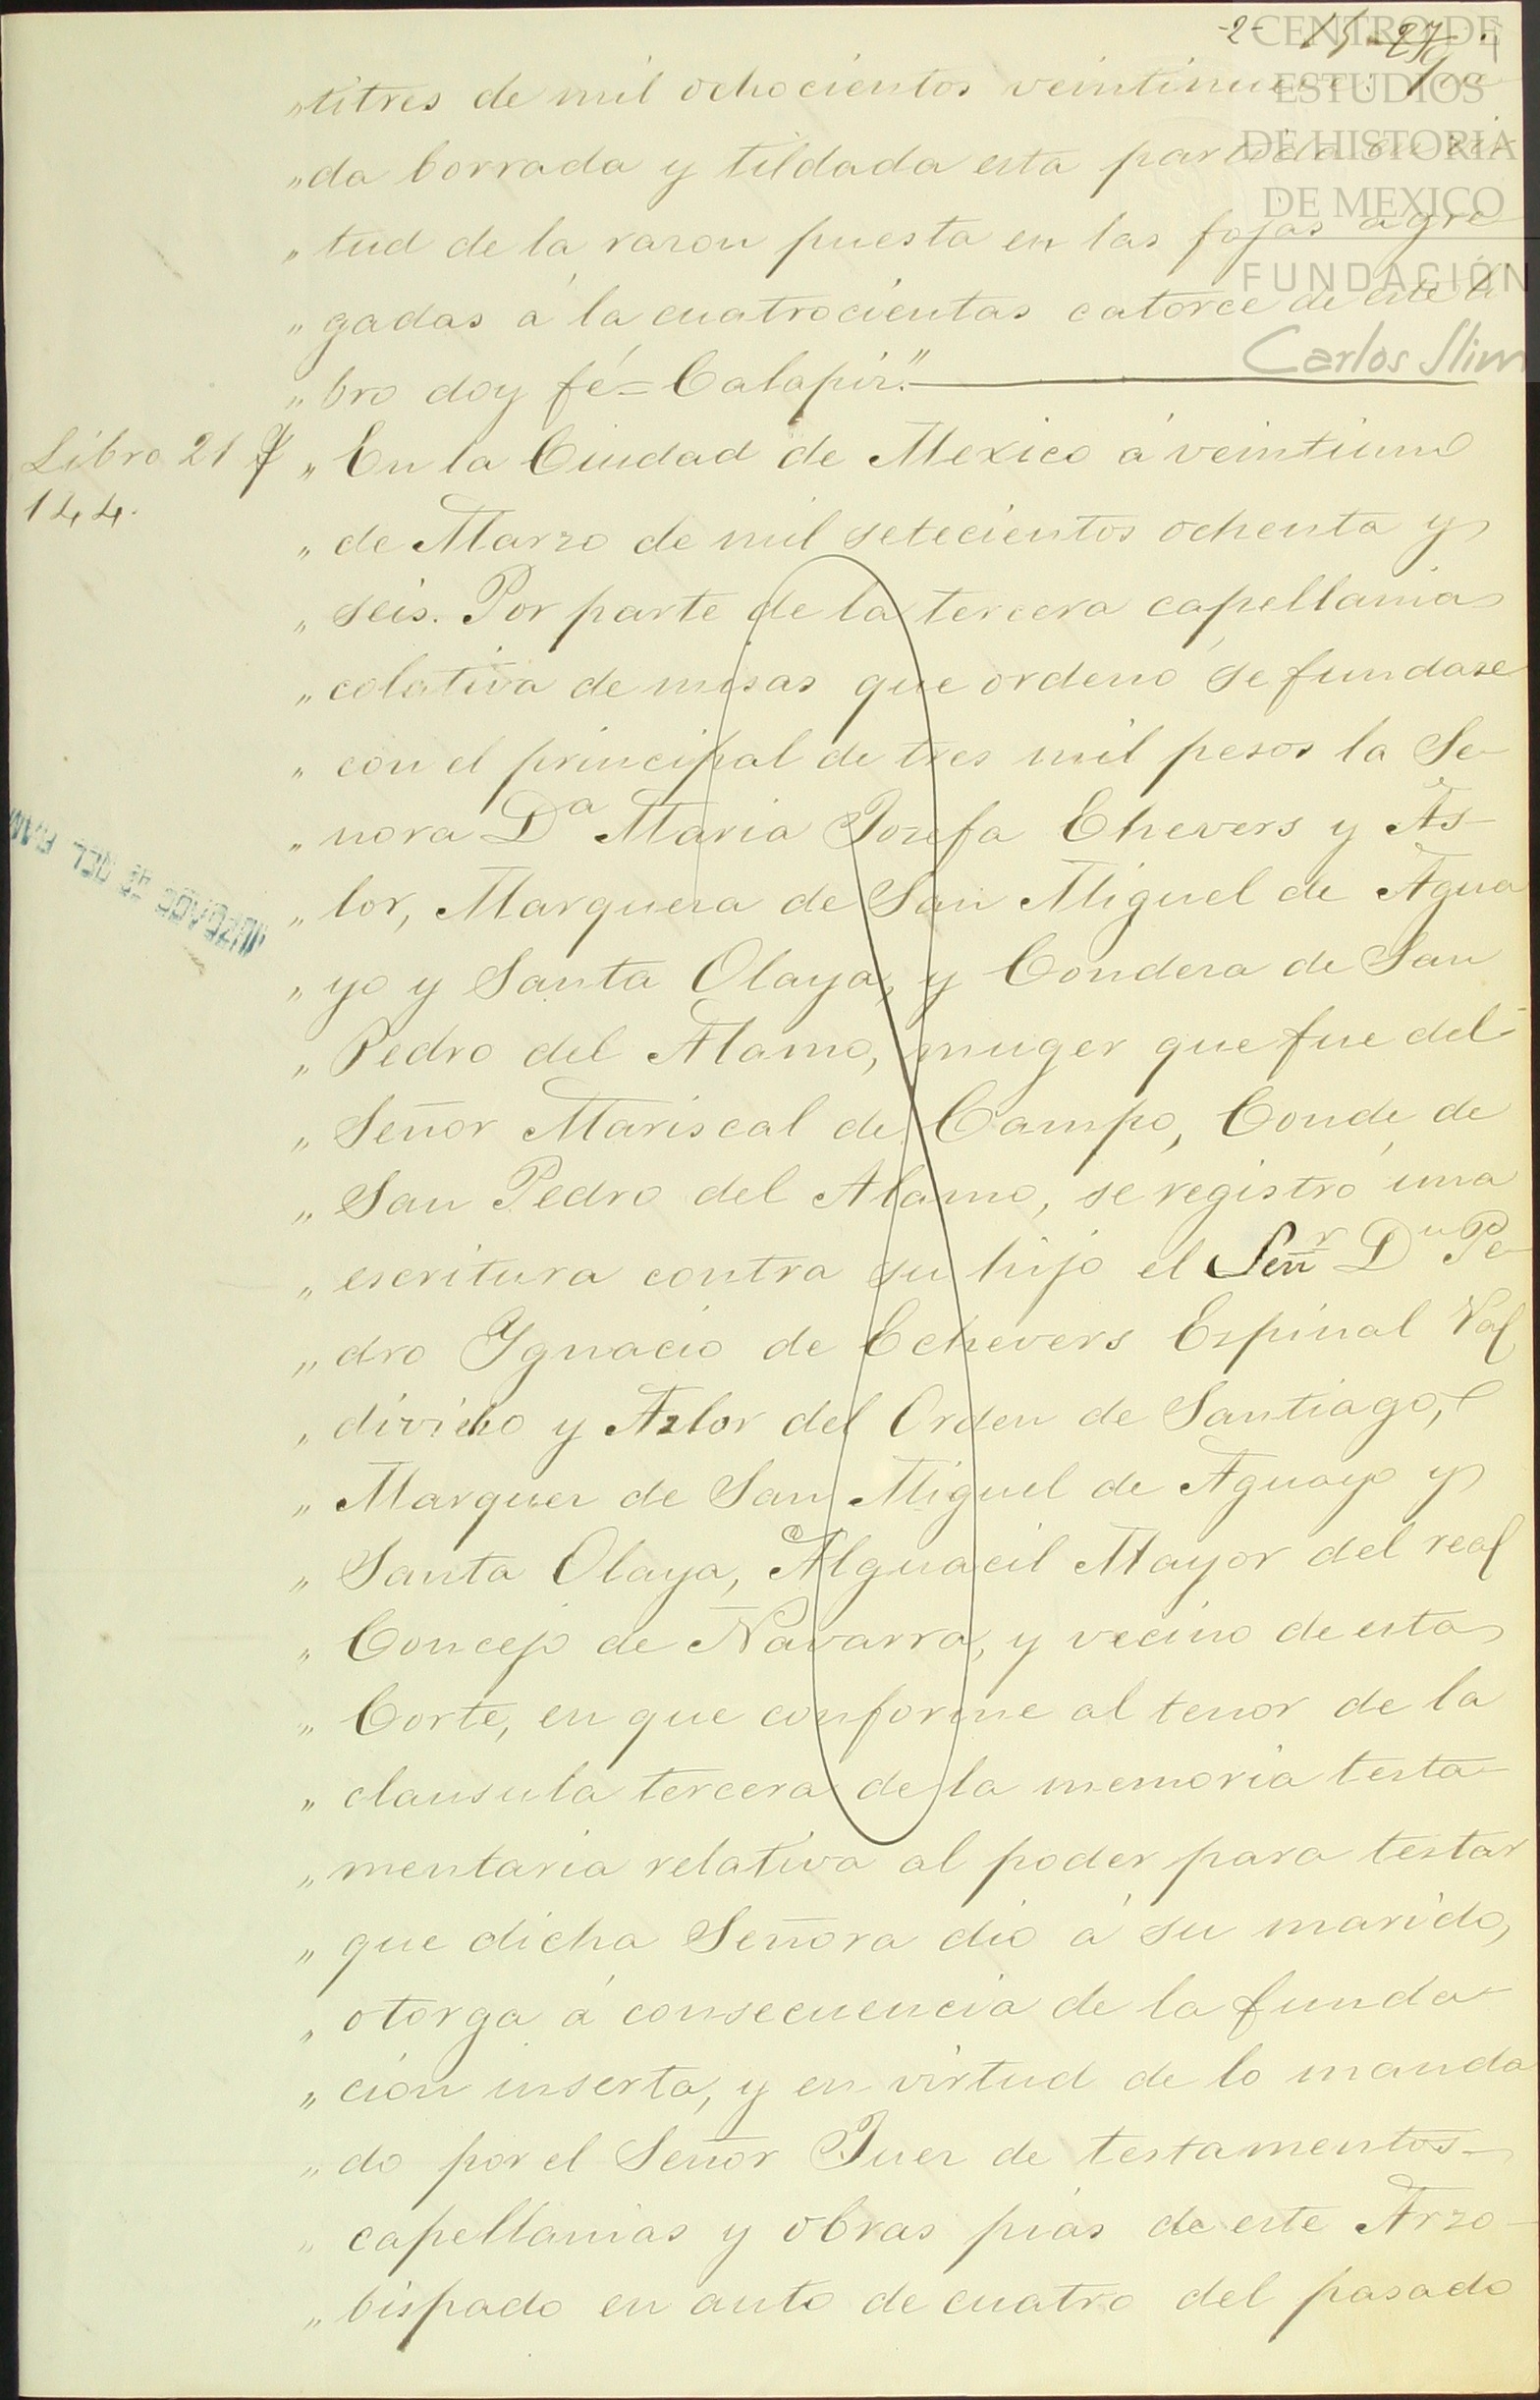 -2-
CENTRO DE
ESTUDIOS
DE HISTORIA
DE MEXICO
FUNDACIÓN
Carlos Slim
„titres de mil ochocientos veintinueve.
„da borrada y tildada esta partida en vir
„tud de la razon puesta en las fojas agre
„gadas á la cuatrocientas catorce de este li
„bro doy fé=Calapiz."
Libro 21 f
144.
„En la Ciudad de Mexico á veintiuno
„de Marzo de mil setecientos ochenta y
„seis. Por parte de la tercera capellania
„colativa de misas que ordenó se fundase
„con el principal de tres mil pesos la Se-
„nora Dª Maria Josefa Echevers y As-
„lor, Marqueza de San Miguel de Agua
„yo y Santa Olaya, y Condeza de San
„Pedro del Alamo, muger que fue del
„Señor Mariscal de Campo, Conde de
„San Pedro del Alamo, se registró una
„escritura contra su hijo el Señr Dn Pe-
„dro Ygnacio de Echevers Espinal Val
„divielso y Azlor del Orden de Santiago,
„Marquez de San Miguel de Aguayo y
„Santa Olaya, Alguacil Mayor del real
„Concejo de Navarra, y vecino de esta
„Corte, en que conforme al tenor de la
„clausula tercera de la memoria testa-
„mentaria relativa al poder para testar
„que dicha Señora dio á su marido,
„otorga á consecuencia de la funda-
„cion inserta, y en virtud de lo manda
„do por el Señor Juez de testamentos-
„capellanias y obras pias de este Arzo-
„bispado en auto de cuatro del pasado
JUZGADO 5º DEL RAM